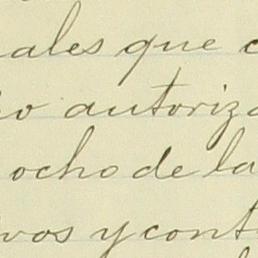 ales que c
o autoriza
ocho de la
vos y cont